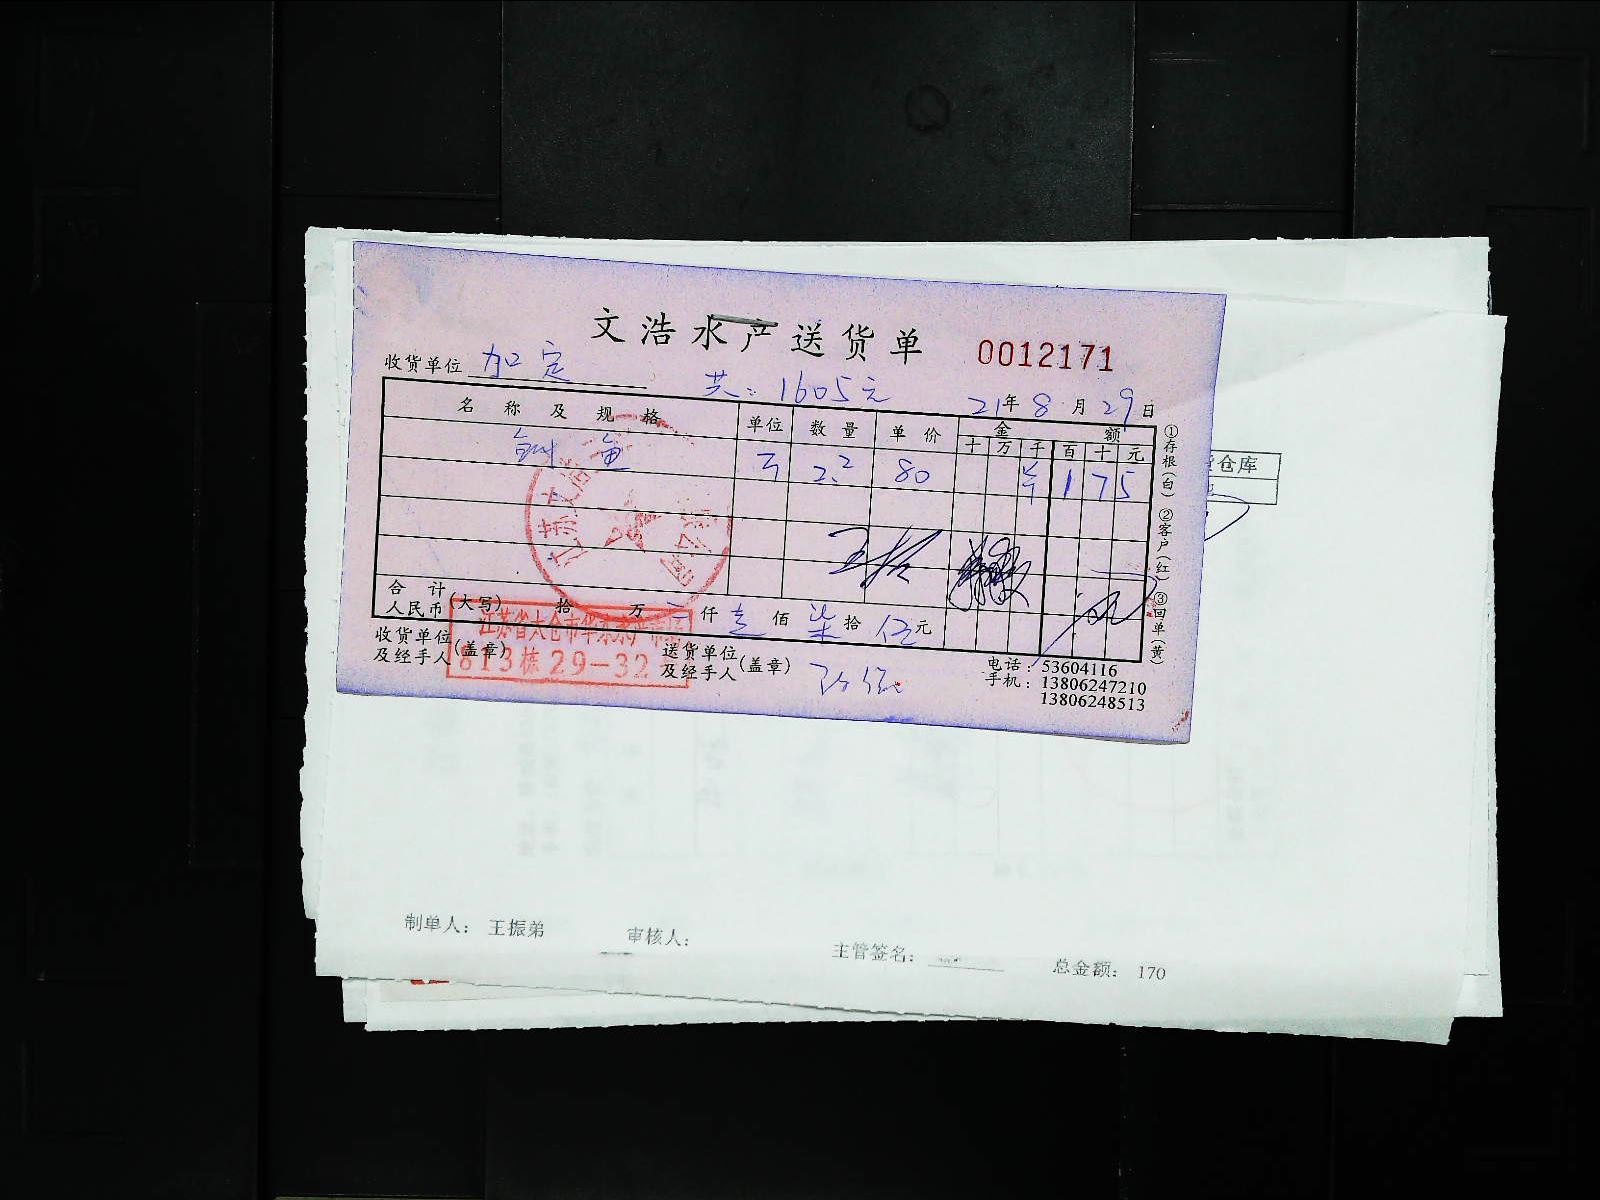 文浩水产送货单 0012171
收货单位 加定 共：1605元 21年8月29日
名称及规格 单位 数量 单价 金额
十 万 千 百 十 元
鱼 2.2 80 ¥ 1 7 5
合计人民币(大写) 拾 万 仟 壹 佰 柒 拾 伍 元
收货单位及经手人(盖章) 送货单位及经手人(盖章)
江苏省太仓市华东
813栋29-32
电话：53604116
手机：13806247210
13806248513
①存根(白) ②客户(红) ③回单(黄)
仓库
制单人： 王振弟 审核人： 主管签名： 总金额： 170